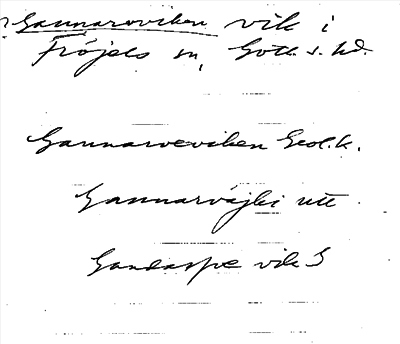 Gannarveviken vik i
Fröjels sn, Gotl. s. hd.
Gannarveviken Geol. k.
Gannarvåjki utt
vik S